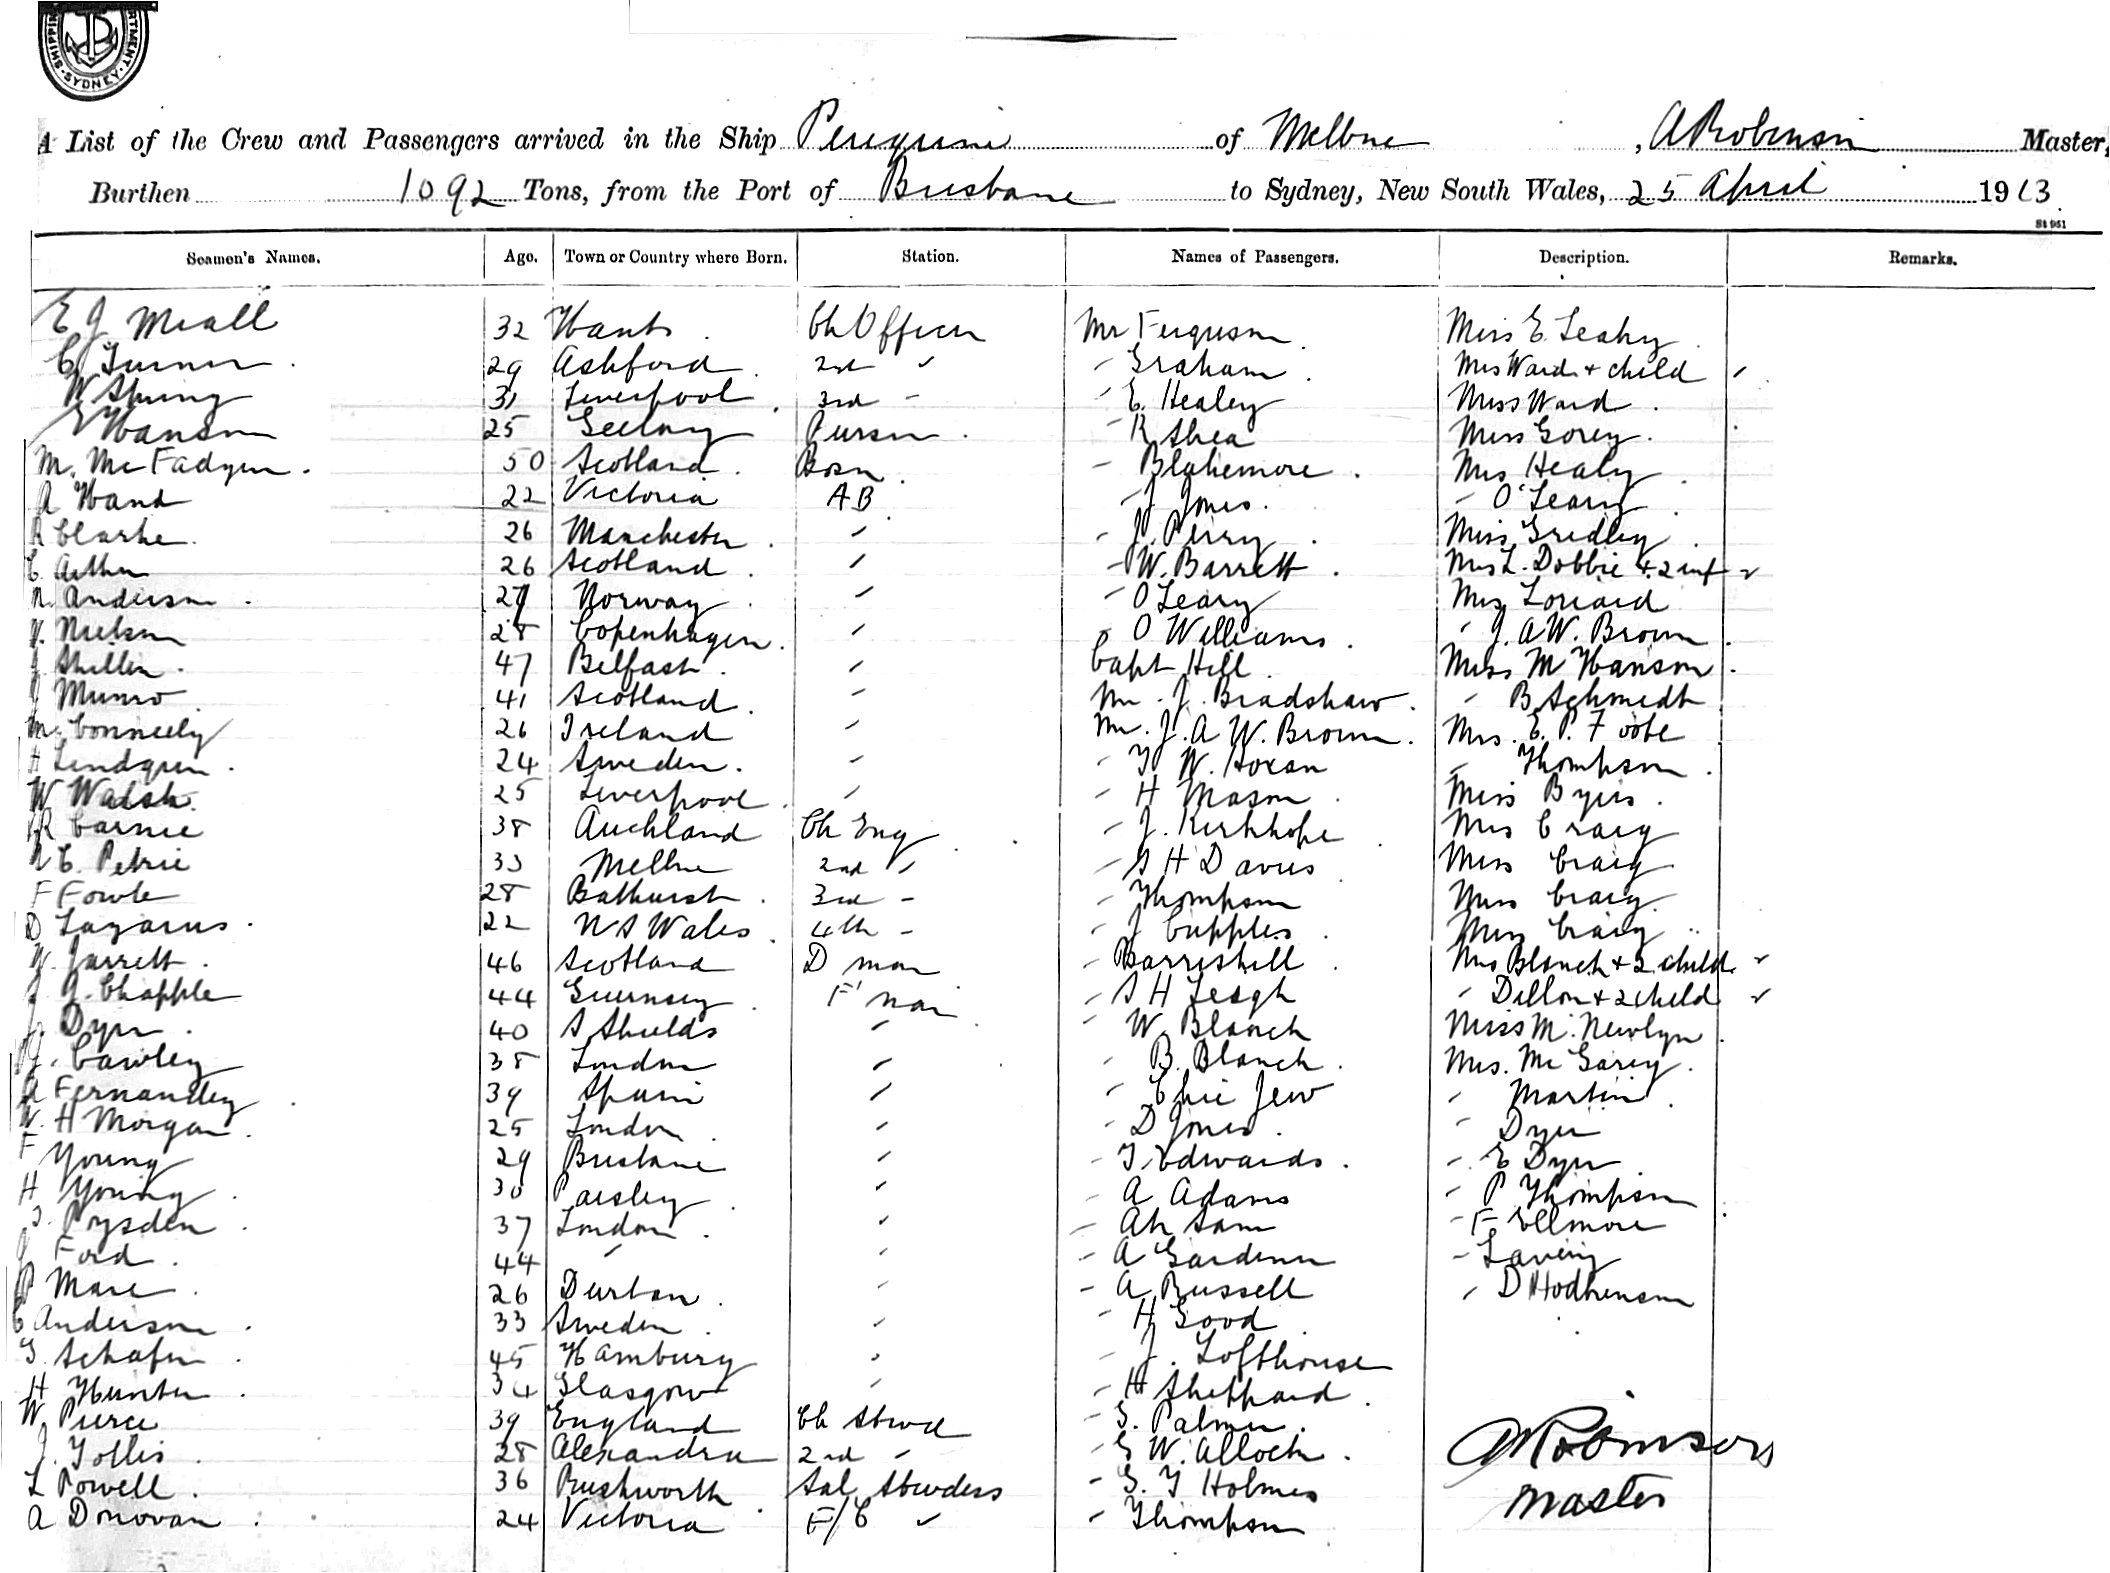 SHIPPING DEPARTMENT. SYDNEY
A List of the Crew and Passengers arrived in the Ship Peregrine of Melbne, A Robinson Master,
Burthen 1092 Tons, from the Port of Brisbane to Sydney, New South Wales, 25 April 1913
St 951
Seamen's Names. Age. Town or Country where Born. Station. Names of Passengers. Description. Remarks.
E J Miall 32 Hants Ch Officer Mr Ferguson Miss E Leahy
C Turner 29 Ashford 2nd " Graham Mrs Ward + child
W Spring 31 Liverpool 3rd - " E. Healey Miss Ward
E Hanson 25 Geelong Purser " R Shea Miss Gorey
M. McFadyen 50 Scotland Bosn - Blakemore Mrs Healy
A Hand 22 Victoria AB - J Jones - O'Leary
R Clarke 26 Manchester " - J. Perry Miss Gredley
C. Arthur 26 Scotland " - W. Barrett Mrs L. Dobbie + 2 inf
N. Anderson 29 Norway " - O Leary Mrs Loriard
Nielson 28 Copenhagen " - O Williams " J. A W. Brown
J Shillin 47 Belfast " Capt Hill Miss M Hanson
J Munro 41 Scotland " Mr J. Bradshaw " B Schmedt
M. Conneely 26 Ireland " Mr. J. A W. Brown Mrs. E. P. Foote
H Lindgren 24 Sweden " - T W. Horan " Thompson
W Walsh 25 Liverpool " - H Mason Miss Byers
R Carnie 38 Auckland Ch Eng - J. Kirkhope Mrs Craig
A C. Petrie 33 Melbne 2nd " - S H Davies Miss Craig
F Fowle 28 Bathurst 3rd - - Thompson Miss Craig
D Lazarus 22 N S Wales 4th - - J Cupples Miss Craig
W. Jarrett 46 Scotland D man - Barrishill Mrs Blanch + 2 child
J. G. Chapple 44 Guernsey F man - S H Leagh " Dillon + 2 child
J. Dyer 40 S Shields " " W. Blanch Miss M. Newlyn
J. Cawley 38 London " - B. Blanch Mrs. McGarey
A Fernandez 39 Spain " " Chie Jew " Martin
W. H Morgan 25 London " - D Jones - Dyer
F Young 29 Brisbane " - T. Edwards - E Dyer
H Young 30 Paisley " - A Adams - P Thompson
Pysden 37 London " - Ah Sam - F Ellmore
J Ford 44 " " - A Gardiner - Lavery
P Mare 26 Durban " - A Russell " D Hodkinson
C Anderson 33 Sweden " - H Good
G. Schafer 45 Hamburg " - J. Lofthouse
H Hunter 34 Glasgow " - H Sheppard
W. Pierce 39 England Ch Stwd - S. Palmer
J. Tollis 28 Alexandra 2nd " - G W. Alloch
L Powell 36 Rushworth Sal Stwdess - G. T Holmes
A Donovan 24 Victoria F/C " - Thompson
A Robinson
Master